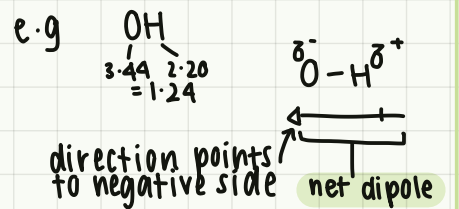 e.g OH
3.44 2.20
= 1.24
δ⁻ δ⁺
O – H
direction points
to negative side
net dipole